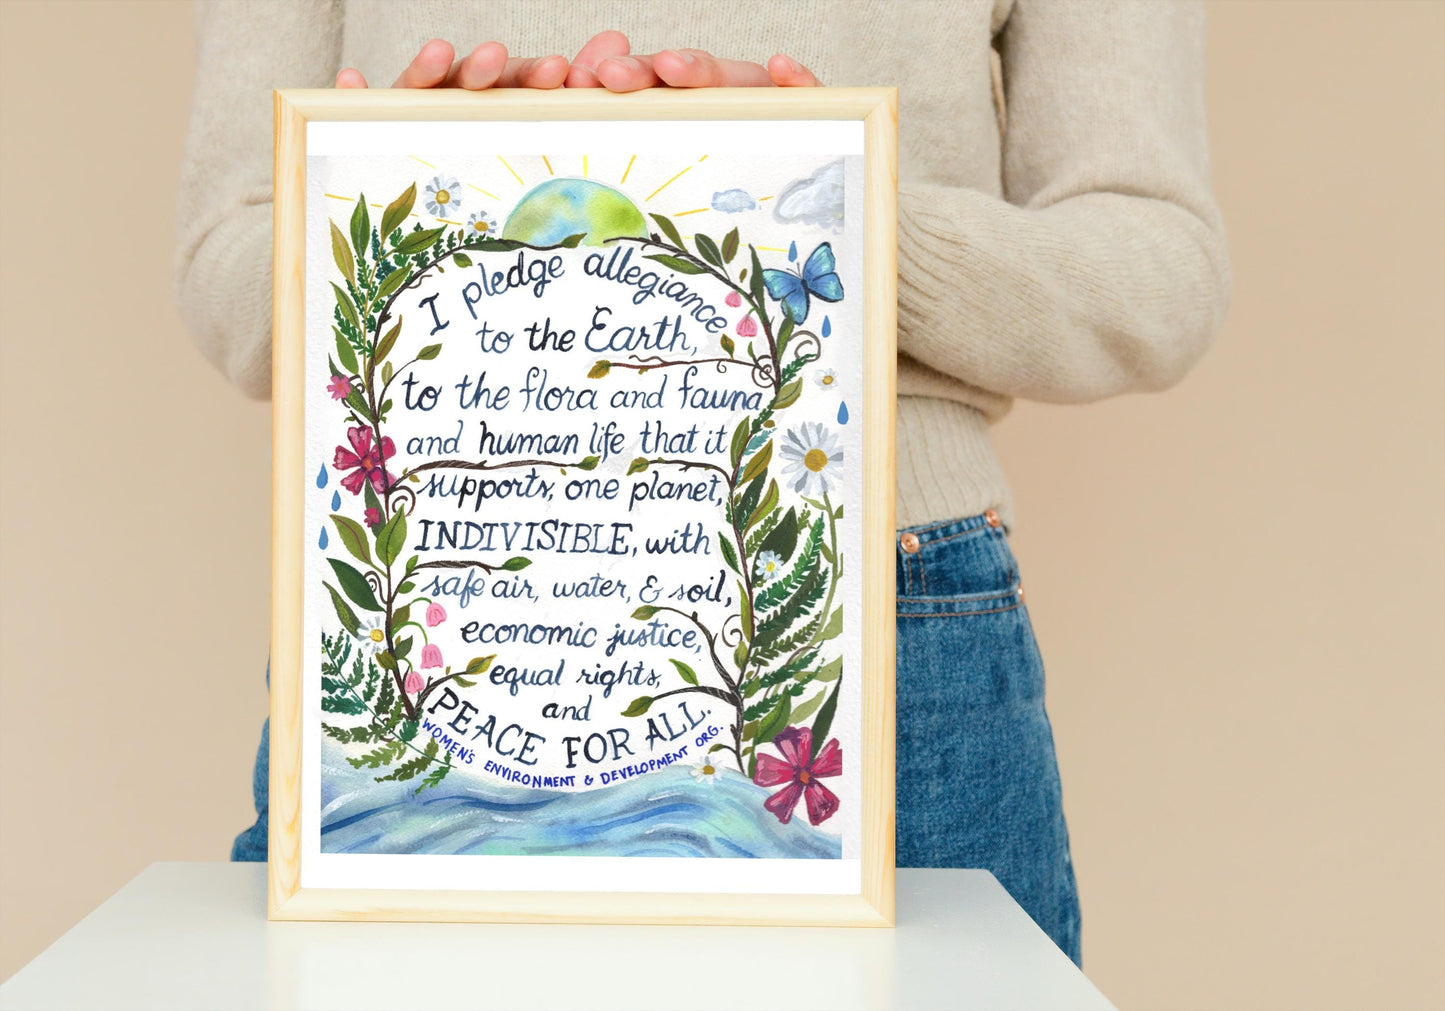 I pledge allegiance
to the Earth,
to the flora and fauna
and human life that it
supports, one planet,
INDIVISIBLE, with
safe air, water, & soil,
economic justice,
equal rights,
and
PEACE FOR ALL.
WOMEN'S ENVIRONMENT & DEVELOPMENT ORG.